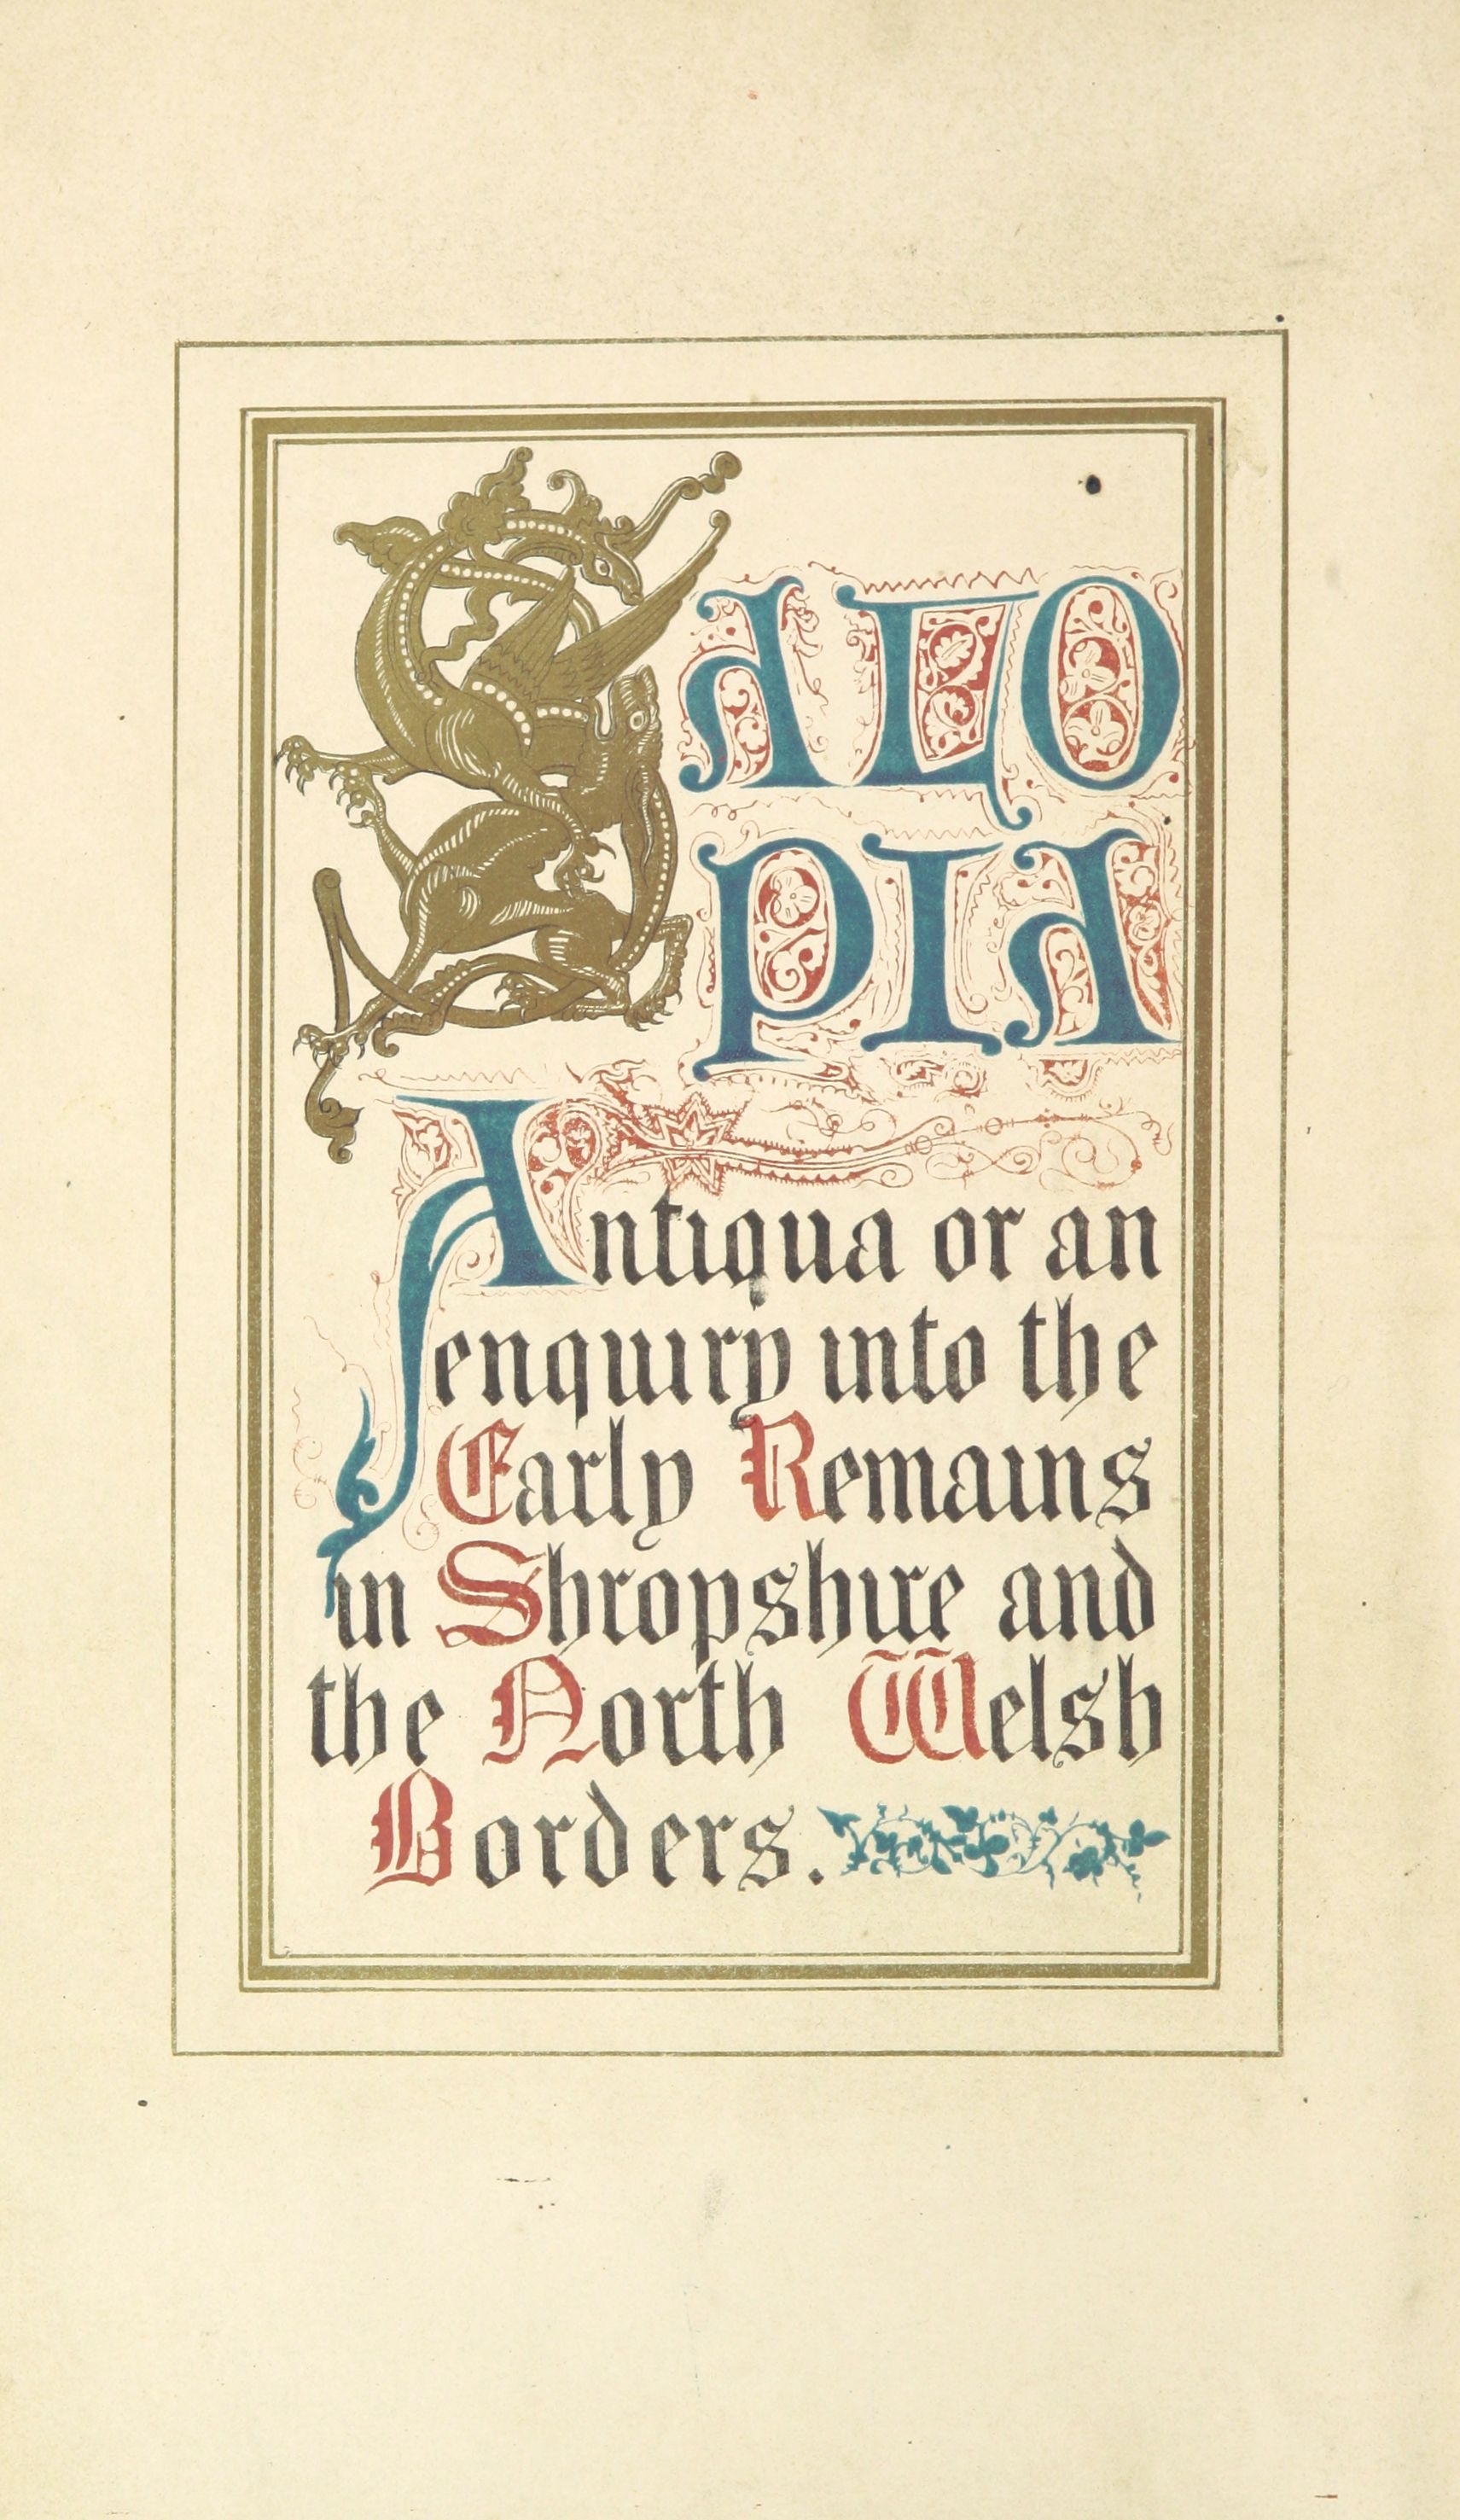 SALO
PIA
Antiqua or an
enquiry into the
Early Remains
in Shropshire and
the North Welsh
Borders.